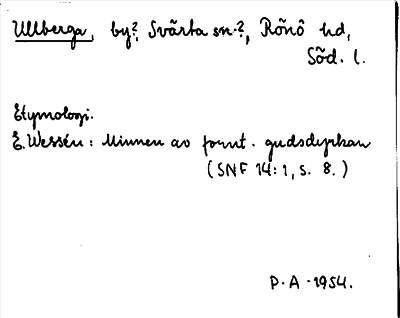 Ullberga, by?, Svärta sn.?, Rönö hd,
Söd. l.
Etymologi.
E. Wessén: Minnen av fornt. gudsdyrkan
(SNF 14:1, s. 8.)
P.A. 1954.